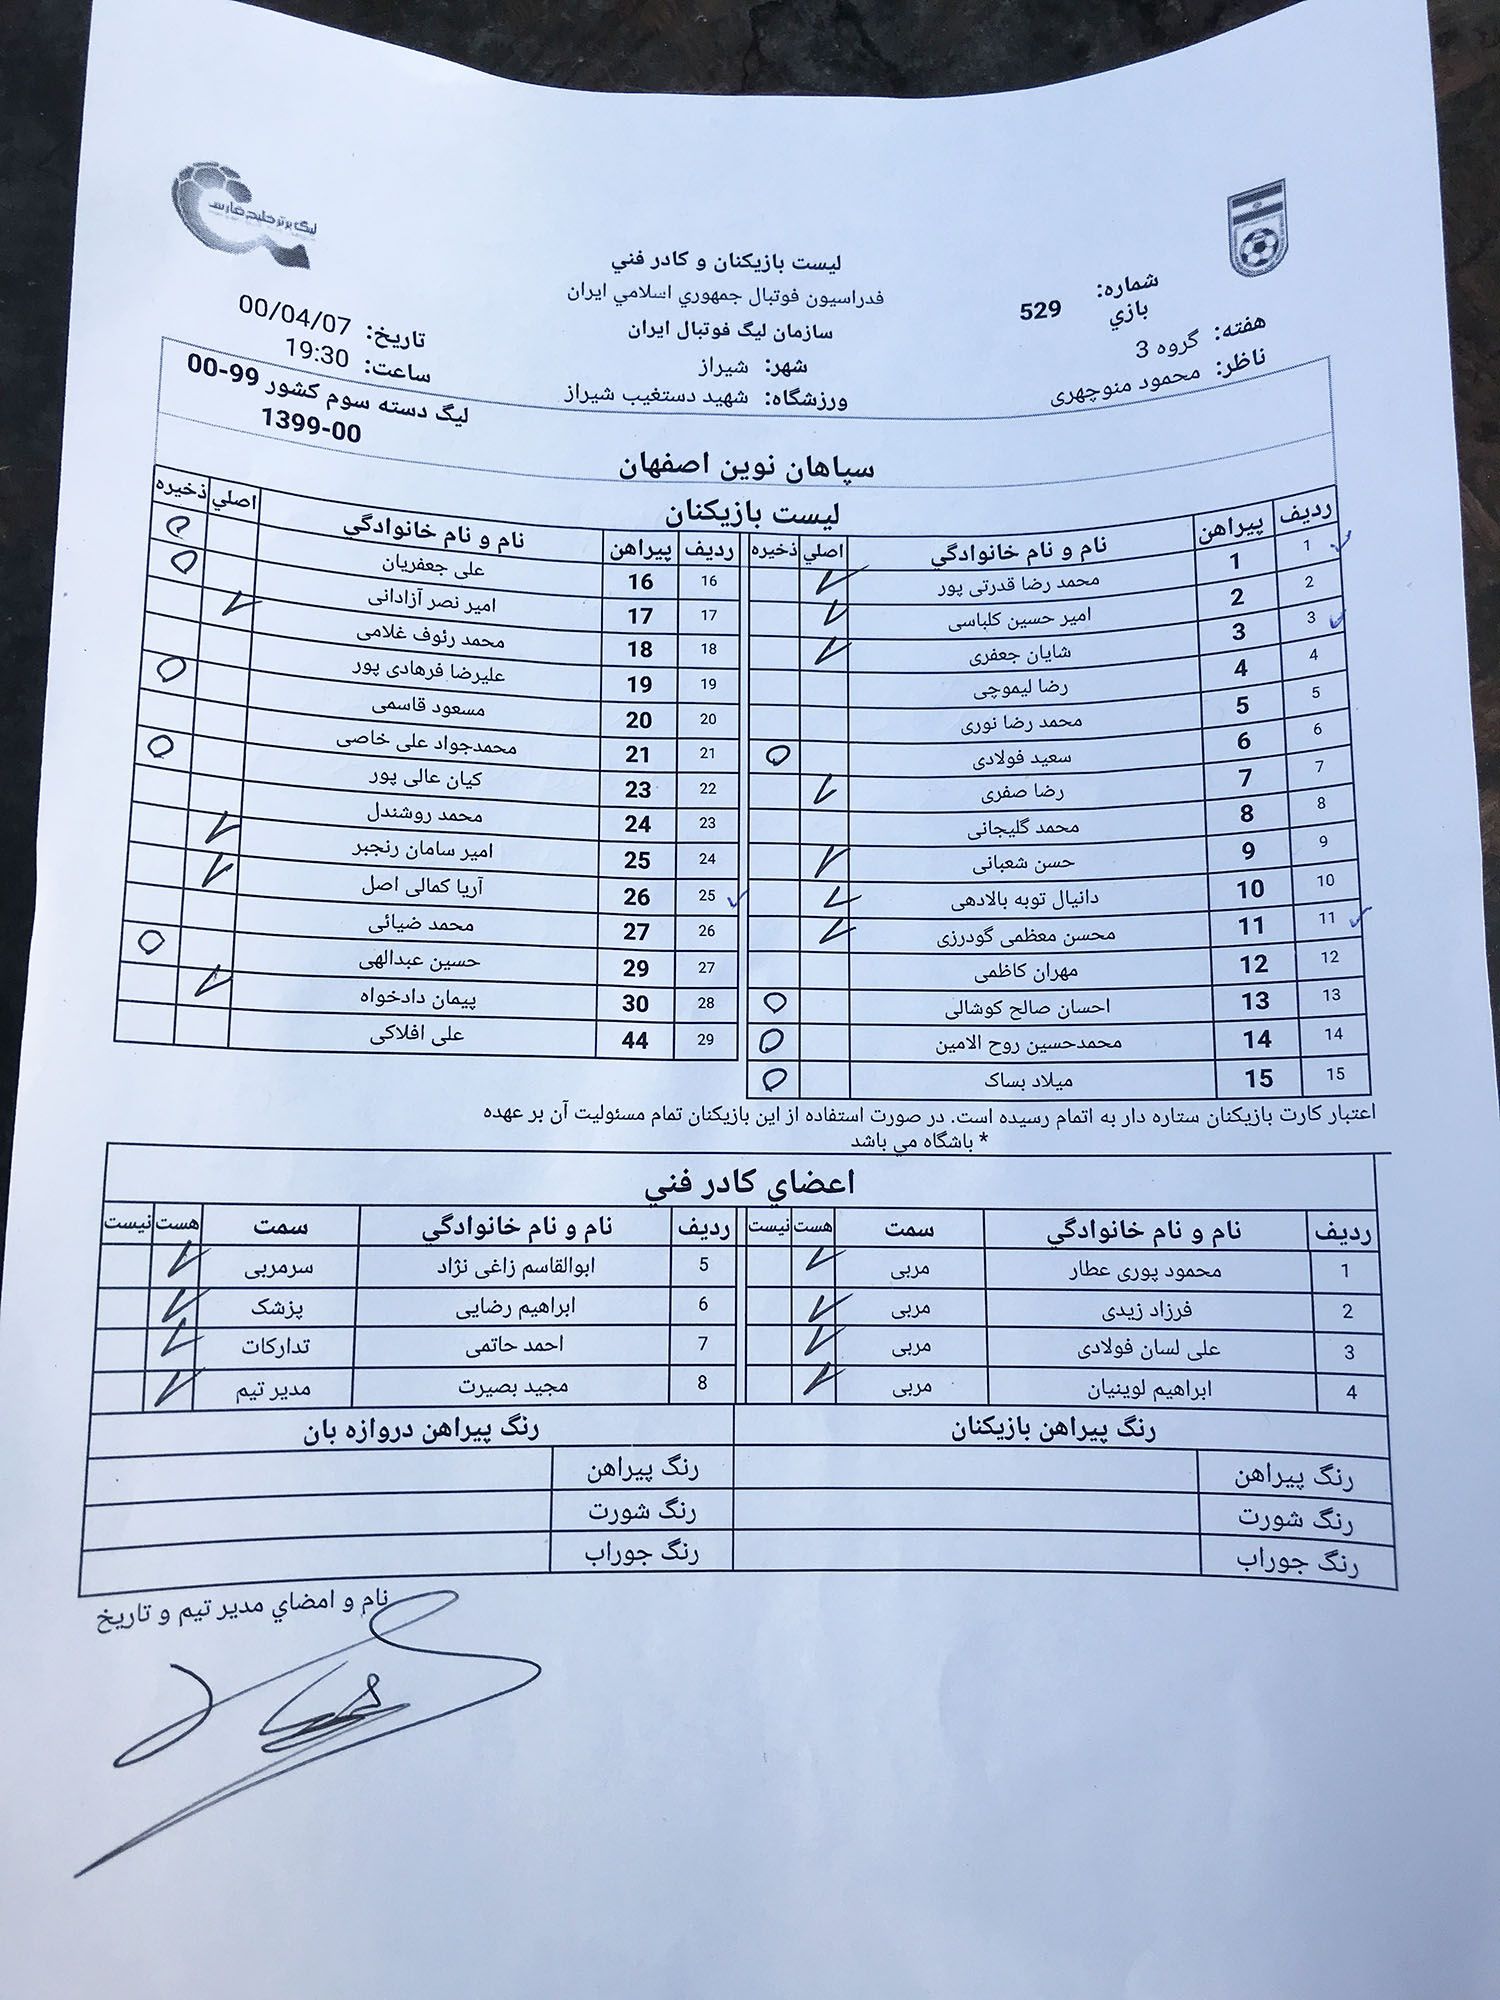 لیگ برتر خلیج فارس
لیست بازیکنان و کادر فني
فدراسیون فوتبال جمهوري اسلامي ایران
سازمان لیگ فوتبال ایران
شهر: شیراز
ورزشگاه: شهید دستغیب شیراز
شماره: بازي 529
هفته: گروه 3
ناظر: محمود منوچهری
تاریخ: 00/04/07
ساعت: 19:30
لیگ دسته سوم کشور 99-00
1399-00
سپاهان نوین اصفهان
لیست بازیکنان
ردیف پیراهن نام و نام خانوادگي اصلي ذخیره
1 1 محمد رضا قدرتی پور
2 2 امیر حسین کلباسی
3 3 شایان جعفری
4 4 رضا لیموچی
5 5 محمد رضا نوری
6 6 سعید فولادی
7 7 رضا صفری
8 8 محمد گلیجانی
9 9 حسن شعبانی
10 10 دانیال توبه بالادهی
11 11 محسن معظمی گودرزی
12 12 مهران کاظمی
13 13 احسان صالح کوشالی
14 14 محمدحسین روح الامین
15 15 میلاد بساک
ردیف پیراهن نام و نام خانوادگي اصلي ذخیره
16 16 علی جعفریان
17 17 امیر نصر آزادانی
18 18 محمد رئوف غلامی
19 19 علیرضا فرهادی پور
20 20 مسعود قاسمی
21 21 محمدجواد علی خاصی
22 23 کیان عالی پور
23 24 محمد روشندل
24 25 امیر سامان رنجبر
25 26 آریا کمالی اصل
26 27 محمد ضیائی
27 29 حسین عبدالهی
28 30 پیمان دادخواه
29 44 علی افلاکی
اعتبار کارت بازیکنان ستاره دار به اتمام رسیده است. در صورت استفاده از این بازیکنان تمام مسئولیت آن بر عهده
* باشگاه مي باشد
اعضاي کادر فني
ردیف نام و نام خانوادگي سمت هست نیست
1 محمود پوری عطار مربی
2 فرزاد زیدی مربی
3 علی لسان فولادی مربی
4 ابراهیم لوینیان مربی
ردیف نام و نام خانوادگي سمت هست نیست
5 ابوالقاسم زاغی نژاد سرمربی
6 ابراهیم رضایی پزشک
7 احمد حاتمی تدارکات
8 مجید بصیرت مدیر تیم
رنگ پیراهن بازیکنان
رنگ پیراهن
رنگ شورت
رنگ جوراب
رنگ پیراهن دروازه بان
رنگ پیراهن
رنگ شورت
رنگ جوراب
نام و امضاي مدیر تیم و تاریخ